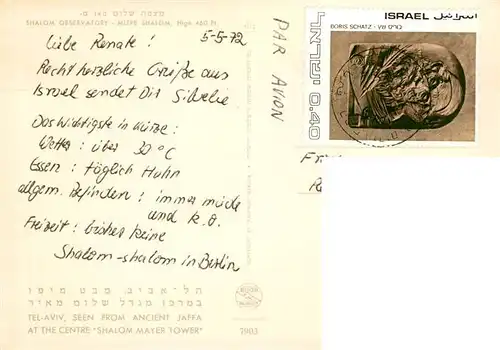 מצפה שלום 140 מ-
SHALOM OBSERVATORY - MITPE SHALOM, High 460 Ft.
Liebe Renate! 5-5-72
Recht herzliche Grüße aus
Israel sendet Dir
Das Wichtigste in Kürze:
Wetter: über 30°C
Essen: täglich Huhn
allgem. Befinden: immer müde
und k.o.
Freizeit: bisher keine
Shalom-shalom in Berlin
PAR AVION
ISRAEL اسرائيل
BORIS SCHATZ בוריס שץ
ישראל 0.40
תל-אביב, מבט מיפו
במרכז מגדל שלום מאיר
TEL-AVIV, SEEN FROM ANCIENT JAFFA
AT THE CENTRE "SHALOM MAYER TOWER"
7903